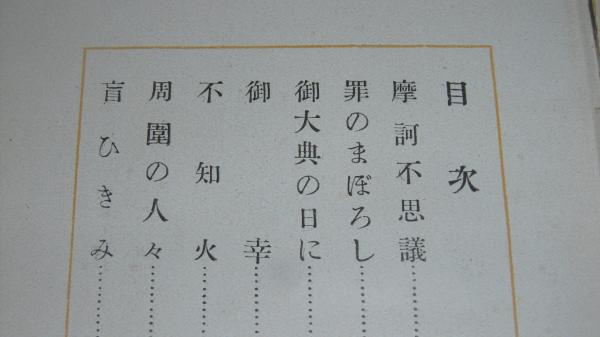 目次
摩訶不思議…………
罪のまぼろし…………
御大典の日に…………
御幸…………
不知火…………
周圍の人々…………
盲ひきみ…………